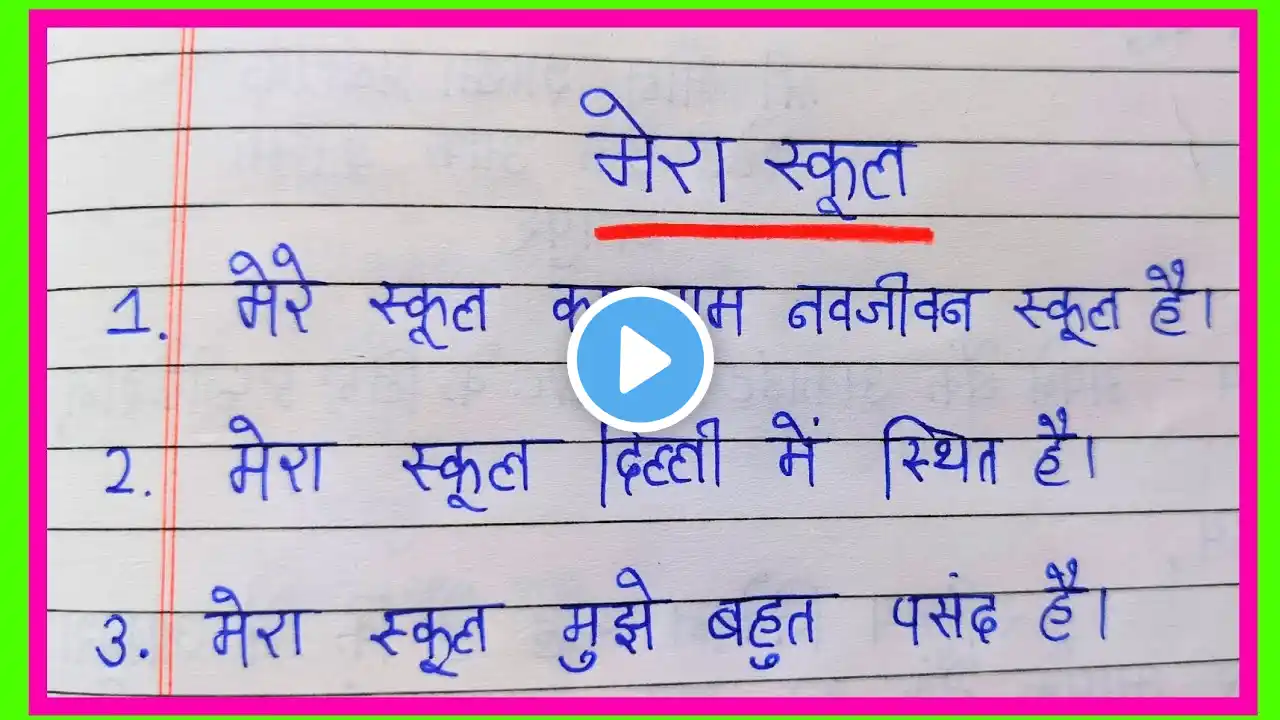 मेरा स्कूल
1. मेरे स्कूल नवजीवन स्कूल है।
2. मेरा स्कूल दिल्ली में स्थित है।
3. मेरा स्कूल मुझे बहुत पसंद है।